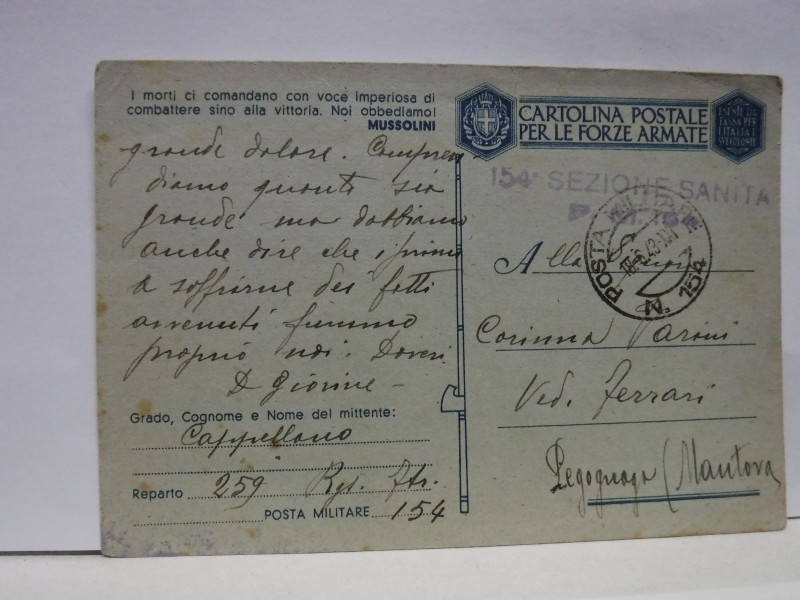 I morti ci comandano con voce imperiosa di
combattere sino alla vittoria. Noi obbediamo!
MUSSOLINI
grande dolore. Compren
diamo quanto sia
grande ma dobbiamo
anche dire che i primi
a soffrirne dei fatti
avvenuti fummo
proprio noi. Doveri
D Giorive
Grado, Cognome e Nome del mittente:
Cappellano
Reparto 259 Rgt. ftr.
POSTA MILITARE 154
CARTOLINA POSTALE
PER LE FORZE ARMATE
ESENTE DA
TASSA PER
L'ITALIA I
SVE COLONIE
154ª SEZIONE SANITA
P. M. 154
POSTA MILITARE
N. 154
Alla
Corinna Varini
Ved. Ferrari
Pegognaga (Mantova